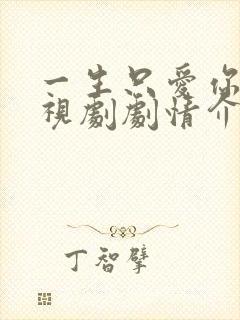 一生只愛你
視劇劇情介
丁智擘